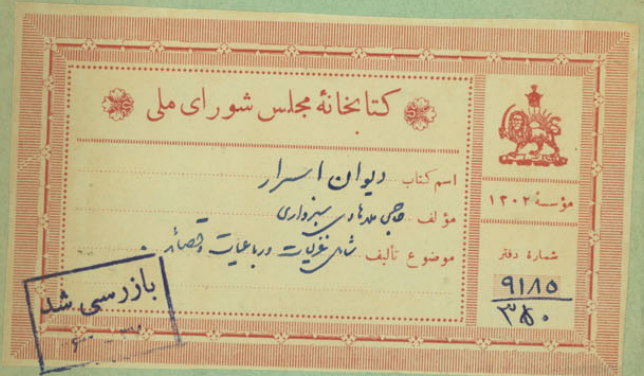 کتابخانهٔ مجلس شورای ملی
اسم کتاب دیوان اسرار
مؤلف حاجی ملاهادی سبزواری
موضوع تألیف شامل غزلیات و رباعیات و قصائد
مؤسسهٔ ۱۳۰۲
شمارهٔ دفتر
۹۱۸۵
بازرسی شد